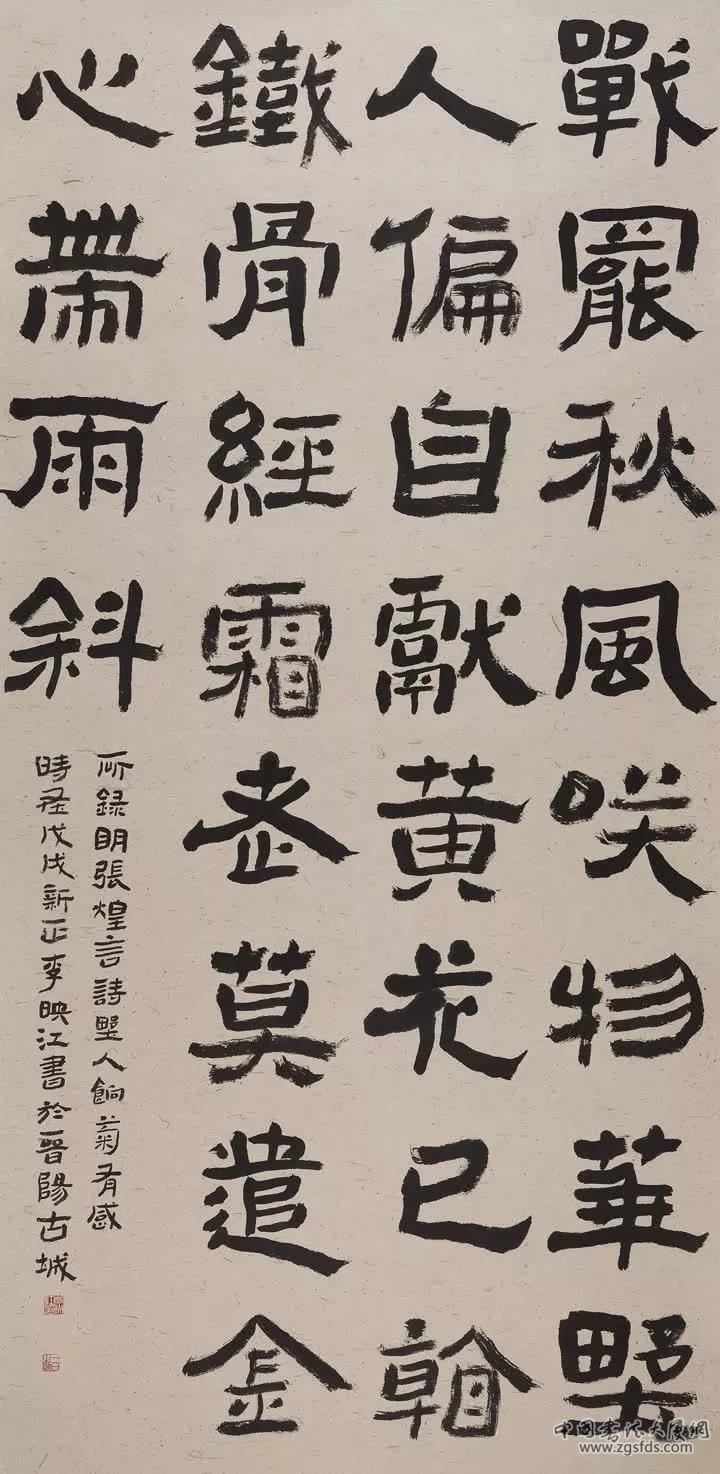 戰罷秋風咲物華野
人偏自獻黃花已看
鐵骨經霜老莫遣金
心帶雨斜
所錄明張煌言詩野人餉菊有感
時在戊戌新正李映江書於晉陽古城
www.zgsfds.com